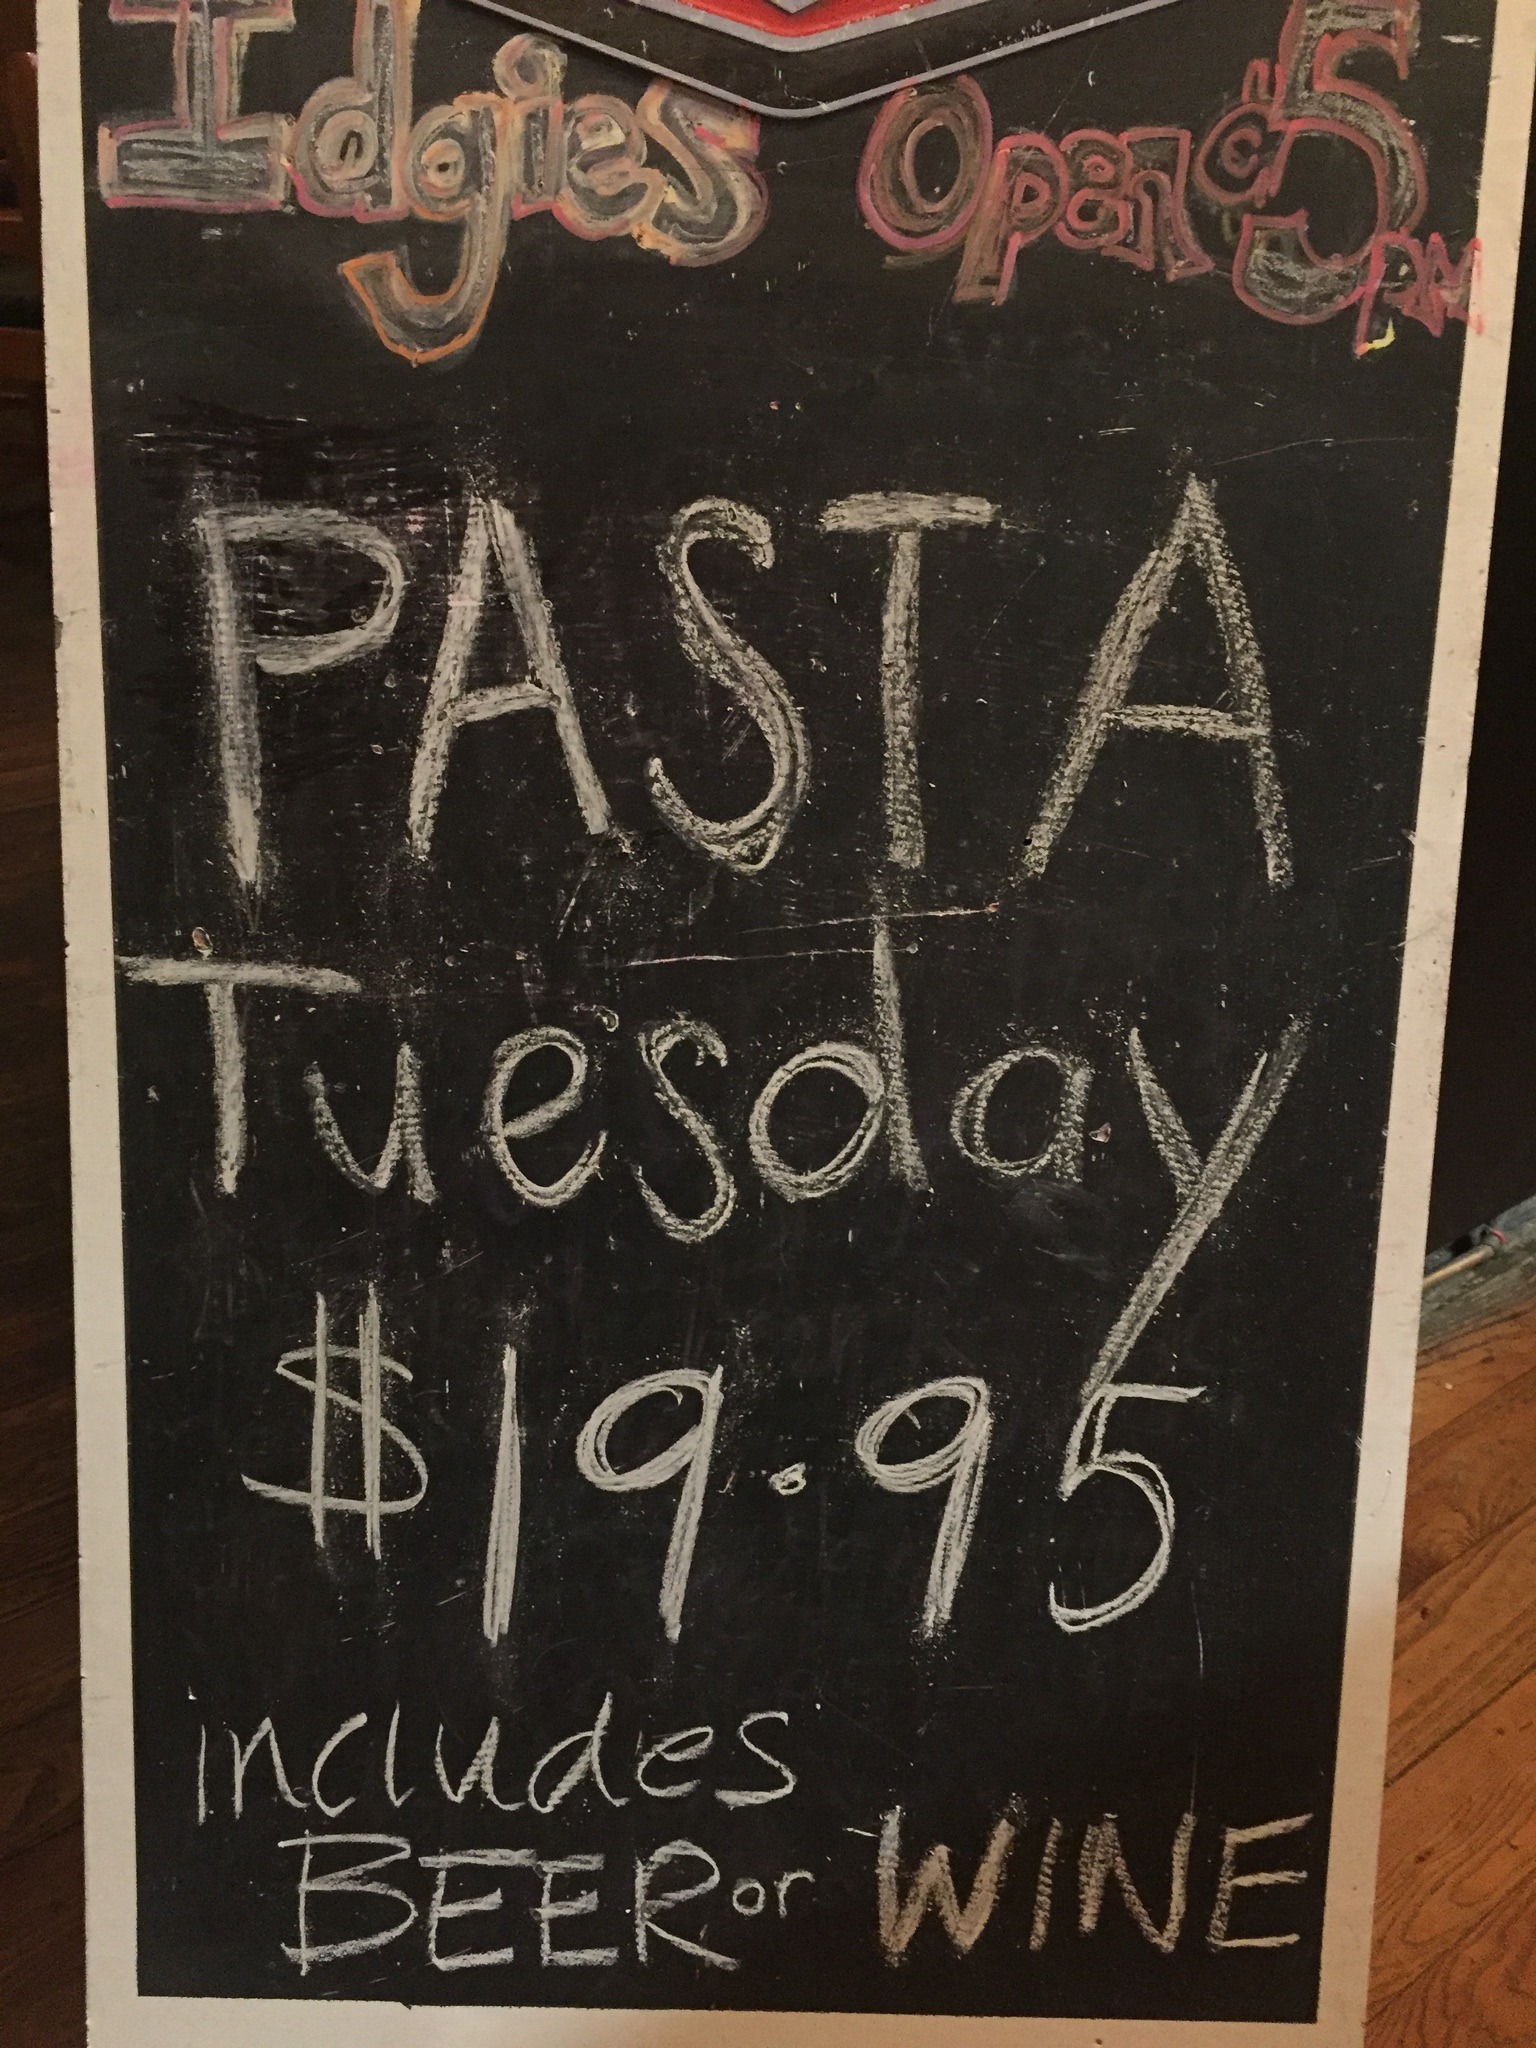 Idgies Open @ 5 PM
PASTA
Tuesday
$19.95
includes
BEER or WINE